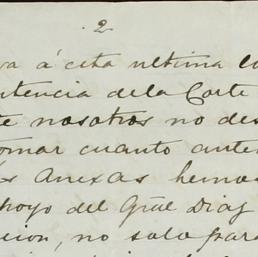 2
va á esta ultima lo
tencia de la Corte
te nosotros no des
omar cuanto ante
s Anexas hemos
poyo del Gral Diaz
cion, no solo para